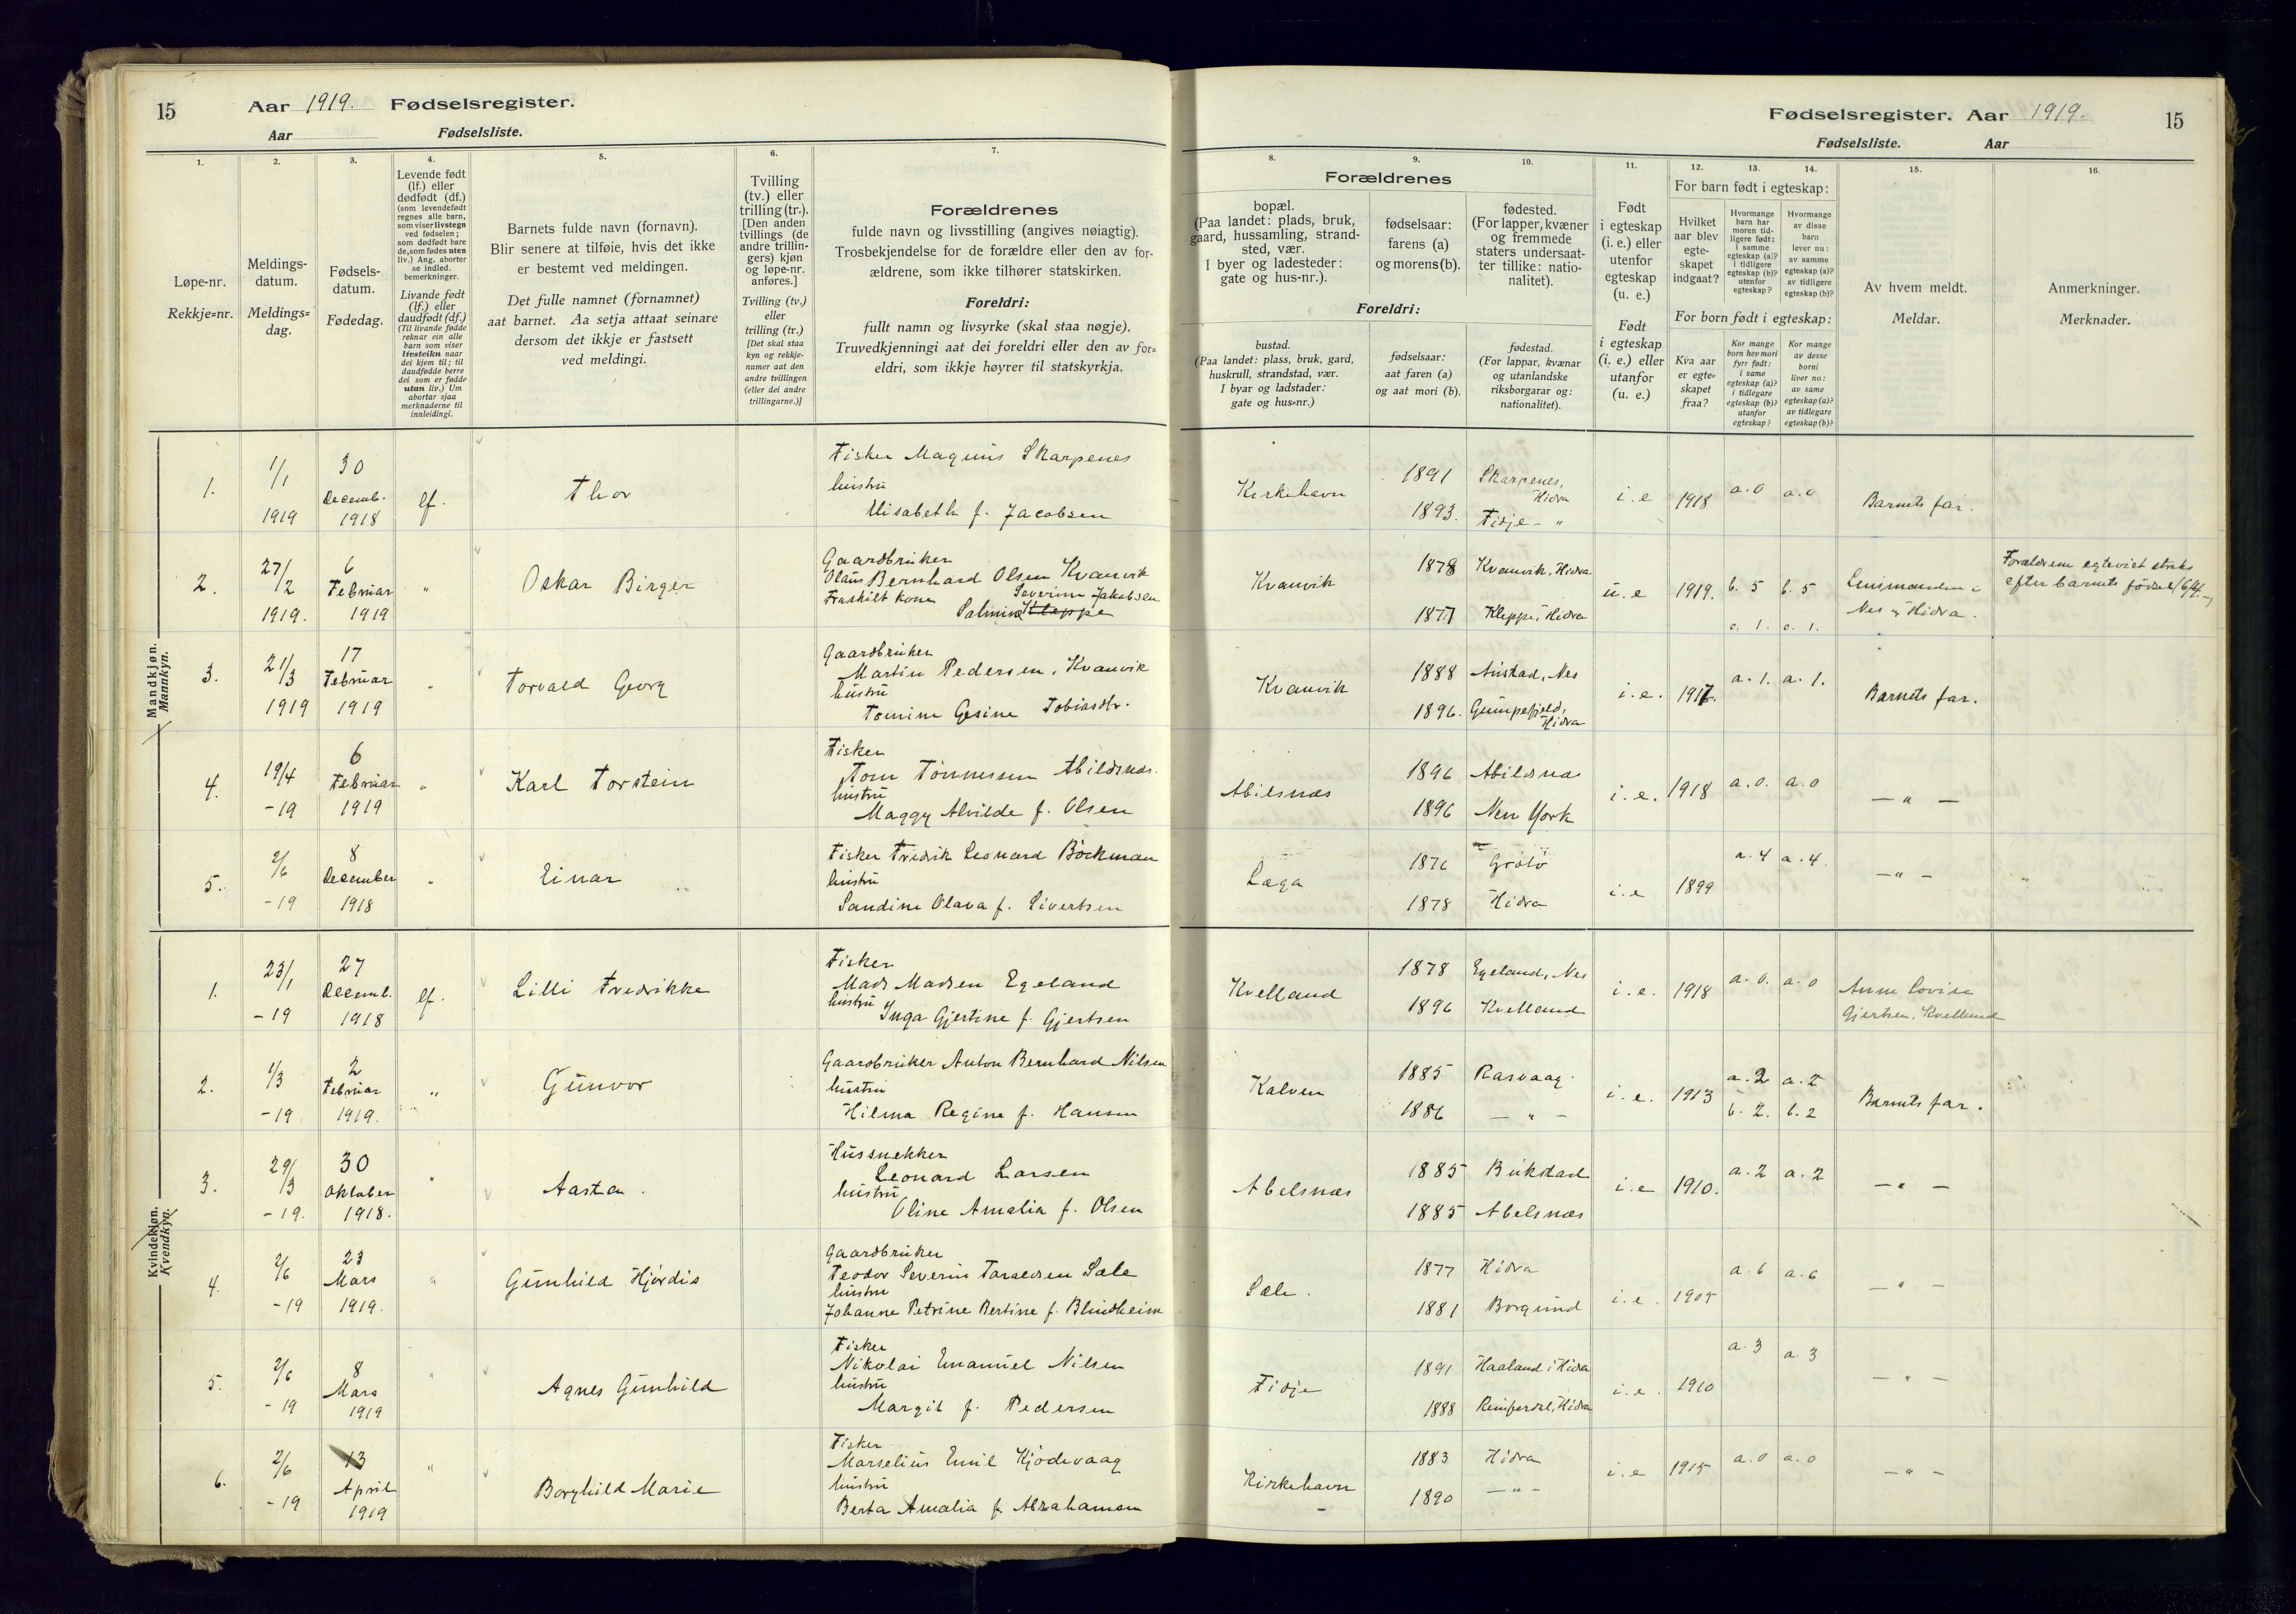 15
Aar 1919. Fødselsregister.
Aar Fødselsliste.
1.
2.
3.
4.
5.
6.
7.
Løpe-nr.
Rekkje=nr.
Meldings-
datum.
Meldings=
dag.
Fødsels-
datum.
Fødedag.
Levende født
(lf.) eller
dødfødt (df.)
(som levendefødt
regnes alle barn,
som viser livstegn
ved fødselen;
som dødfødt bare
de, som fødes uten
liv.) Ang. aborter
se indled.
bemerkninger.
Livande født
(lf.) eller
daudfødt (df.)
(Til livande fødde
reknar ein alle
barn som viser
livsteikn naar
dei kjem til; til
daudfødde berre
dei som er fødde
utan liv.) Um
abortar sjaa
merknaderne til
innleidingi.
Barnets fulde navn (fornavn).
Blir senere at tilføie, hvis det ikke
er bestemt ved meldingen.
Det fulle namnet (fornamnet)
aat barnet. Aa setja attaat seinare
dersom det ikkje er fastsett
ved meldingi.
Tvilling
(tv.) eller
trilling (tr.).
[Den anden
tvillings (de
andre trillin-
gers) kjøn
og løpe-nr.
anføres.]
Tvilling (tv.)
eller
trilling (tr.)
[Det skal staa
kyn og rekkje-
numer aat den
andre tvillingen
(eller dei andre
trillingarne.)]
Forældrenes
fulde navn og livsstilling (angives nøiagtig).
Trosbekjendelse for de forældre eller den av for-
ældrene, som ikke tilhører statskirken.
Foreldri:
fullt namn og livsyrke (skal staa nøgje).
Truvedkjenningi aat dei foreldri eller den av for=
eldri, som ikkje høyrer til statskyrkja.
Mandkjøn.
Mannkyn.
1.
1/1
1919
30
Decemb.
1918
lf.
Thor
Fisker Magnus Skarpenes
hustru
Elisabeth f. Jacobsen
2.
27/2
1919.
6
Februar
1919
"
Oskar Birger
Gaardbruker
Olaus Bernhard Olsen Kvanvik
Fraskilt kone Severine Jakobsen
Salmine Kleppe
3.
21/3
1919
17
Februar
1919
"
Torvald Georg
Gaardbruker
Martin Pedersen, Kvanvik
hustru
Tomine Gesine Tobiasdtr.
4.
19/4
-19
6
Februar
1919
"
Karl Torstein
Fisker
Tom Tønnessen Abildsnæs.
hustru
Maggy Alvilde f. Olsen
5.
2/6
-19
8
December
1918
"
Einar
Fisker Fredrik Leonard Böckman
hustru
Sandine Olava f. Sivertsen
Kvindekjøn.
Kvendkyn.
1.
23/1
-19
27
Decemb.
1918
lf.
Lilli Fredrikke
Fisker
Mads Madsen Egeland
hustru
Inga Gjertine f. Gjertsen
2.
1/3
-19
2
Februar
1919.
"
Gunvor
Gaardbruker Anton Bernhard Nilsen
hustru
Hilma Regine f. Hansen
3.
29/3
-19.
30
Oktober
1918.
"
Aasta.
Hussnekker
Leonard Larsen
hustru
Oline Amalia f. Olsen
4.
2/6
-19
23
Mars
1919.
"
Gunhild Hjørdis
Gaardbruker
Teodor Severin Taraldsen Sæle
hustru
Johanne Petrine Bertine f. Blindheim
5.
2/6
-19
8
Mars
1919
"
Agnes Gunhild
Fisker
Nikolai Emanuel Nilsen
hustru
Margit f. Pedersen
6.
2/6
-19
13
April
1919
"
Borghild Marie
Fisker
Marselius Emil Kjödevaag
hustru
Berta Amalia f. Abrahamsen
Fødselsregister. Aar 1919.
15
Fødselsliste. Aar
8.
9.
10.
11.
12.
13.
14.
15.
16.
Forældrenes
bopæl.
(Paa landet: plads, bruk,
gaard, hussamling, strand-
sted, vær.
I byer og ladesteder:
gate og hus-nr.).
fødselsaar:
farens (a)
og morens (b).
fødested.
(For lapper, kvæner
og fremmede
staters undersaat-
ter tillike: natio-
nalitet).
Foreldri:
bustad.
(Paa landet: plass, bruk, gard,
huskrull, strandstad, vær.
I byar og ladstader:
gate og hus=nr.)
fødselsaar:
aat faren (a)
og aat mori (b).
fødestad.
(For lappar, kvænar
og utanlandske
riksborgarar og:
nationalitet).
Født
i egteskap
(i. e.) eller
utenfor
egteskap
(u. e.)
Født
i egteskap
(i. e.) eller
utanfor
(u. e.)
For barn født i egteskap:
Hvilket
aar blev
egte-
skapet
indgaat?
Hvormange
barn har
moren tid-
ligere født:
i samme
egteskap (a)?
i tidligere
egteskap (b)?
utenfor
egteskap?
Hvormange
av disse
barn
lever nu:
av samme
egteskap (a)?
av tidligere
egteskap (b)?
For born født i egteskap:
Kva aar
er egte=
skapet
fraa?
Kor mange
born hev mori
fyrr født:
i same
egteskap (a)?
i tidlegare
egteskap (b)?
utanfor
egteskap?
Kor mange
av desse
borni
liver no:
av same
egteskap (a)?
av tidlegare
egteskap (b)?
Av hvem meldt.
Meldar.
Anmerkninger.
Merknader.
Kirkehavn
1891
1893.
Skarpenes,
Hidra
Fidje - "
i. e
1918
a. 0
a. 0
Barnets far.
Kvanvik
1878
1877
Kvanvik, Hidra
Kleppe, Hidra
u. e
1919.
b. 5
b. 5
c. 1.
c. 1.
Lensmanden i
Nes og Hidra.
Forældrene egteviet straks
efter barnets fødsel
Kvanvik
1888
1896.
Austad, Nes
Gumpefjeld,
Hidra
i. e.
1917.
a. 1.
a. 1.
Barnets far.
Abilsnæs
1896
1896
Abildsnæs
New York
i. e.
1918
a. 0.
a. 0
— " —
Læga
1876
1878
Hidra
i. e
1899
a. 4
a. 4.
— " —
Kvelland
1878
1896
Egeland, Nes
Kvelland
i. e.
1918
a. 0.
a. 0
Anne Lovise
Gjertsen, Kvelland
Kalven
1885
1886
Rasvaag.
— " —
i. e.
1913
a. 2
a. 2
b. 2.
b. 2
Barnets far.
Abelsnæs
1885
1885
Bukstad
Abelsnæs
i. e
1910.
a. 2
a. 2
— " —
Sæle.
1877
1881
Hidra
Borgund
i. e.
1905
a. 6
a. 6
— " —
Fidje
1891
1888
Haaland i Hidra
i. e.
1910
a. 3
a. 3
— " —
Kirkehavn
1883
1890
Hidra
— " —
i. e
1915
a. 0
a. 0
— " —